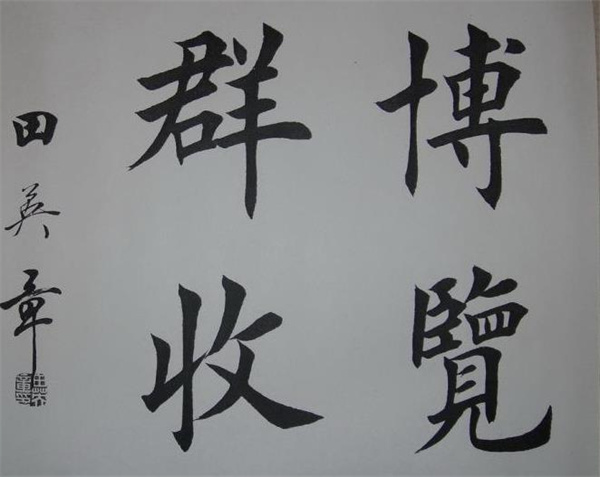 博覽
群收
田英章